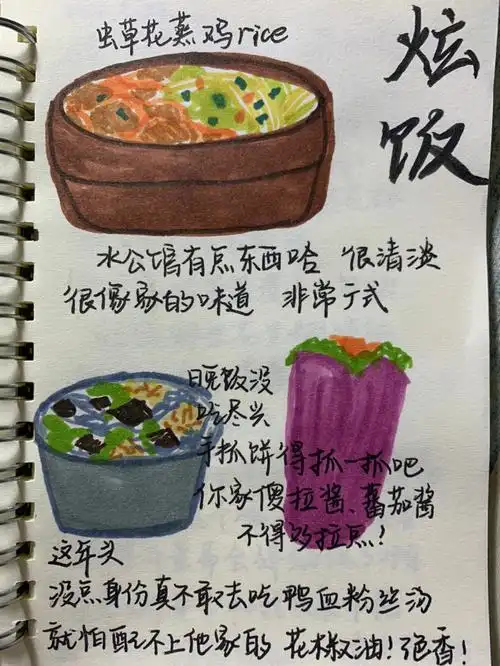 虫草花蒸鸡rice
炫饭
水公馆有点东西哈 很清淡
很像家的味道 非常于式
晚饭没
吃尽兴
手抓饼得抓一抓吧
你家傻拉酱、蕃茄酱
不得多拉点!
这年头
没点身份真不敢去吃鸭血粉丝汤
就怕配不上他家的花椒油!绝香!